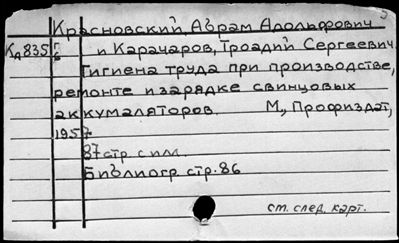 Красновский, Абрам Адольфович
Кд835 и Карачаров, Троадий Сергеевич.
Гигиена труда при производстве,
ремонте и зарядке свинцовых
аккумаляторов. М., Профиздат,
1957
87 стр с илл.
Библиогр. стр. 86
ст. след. карт.